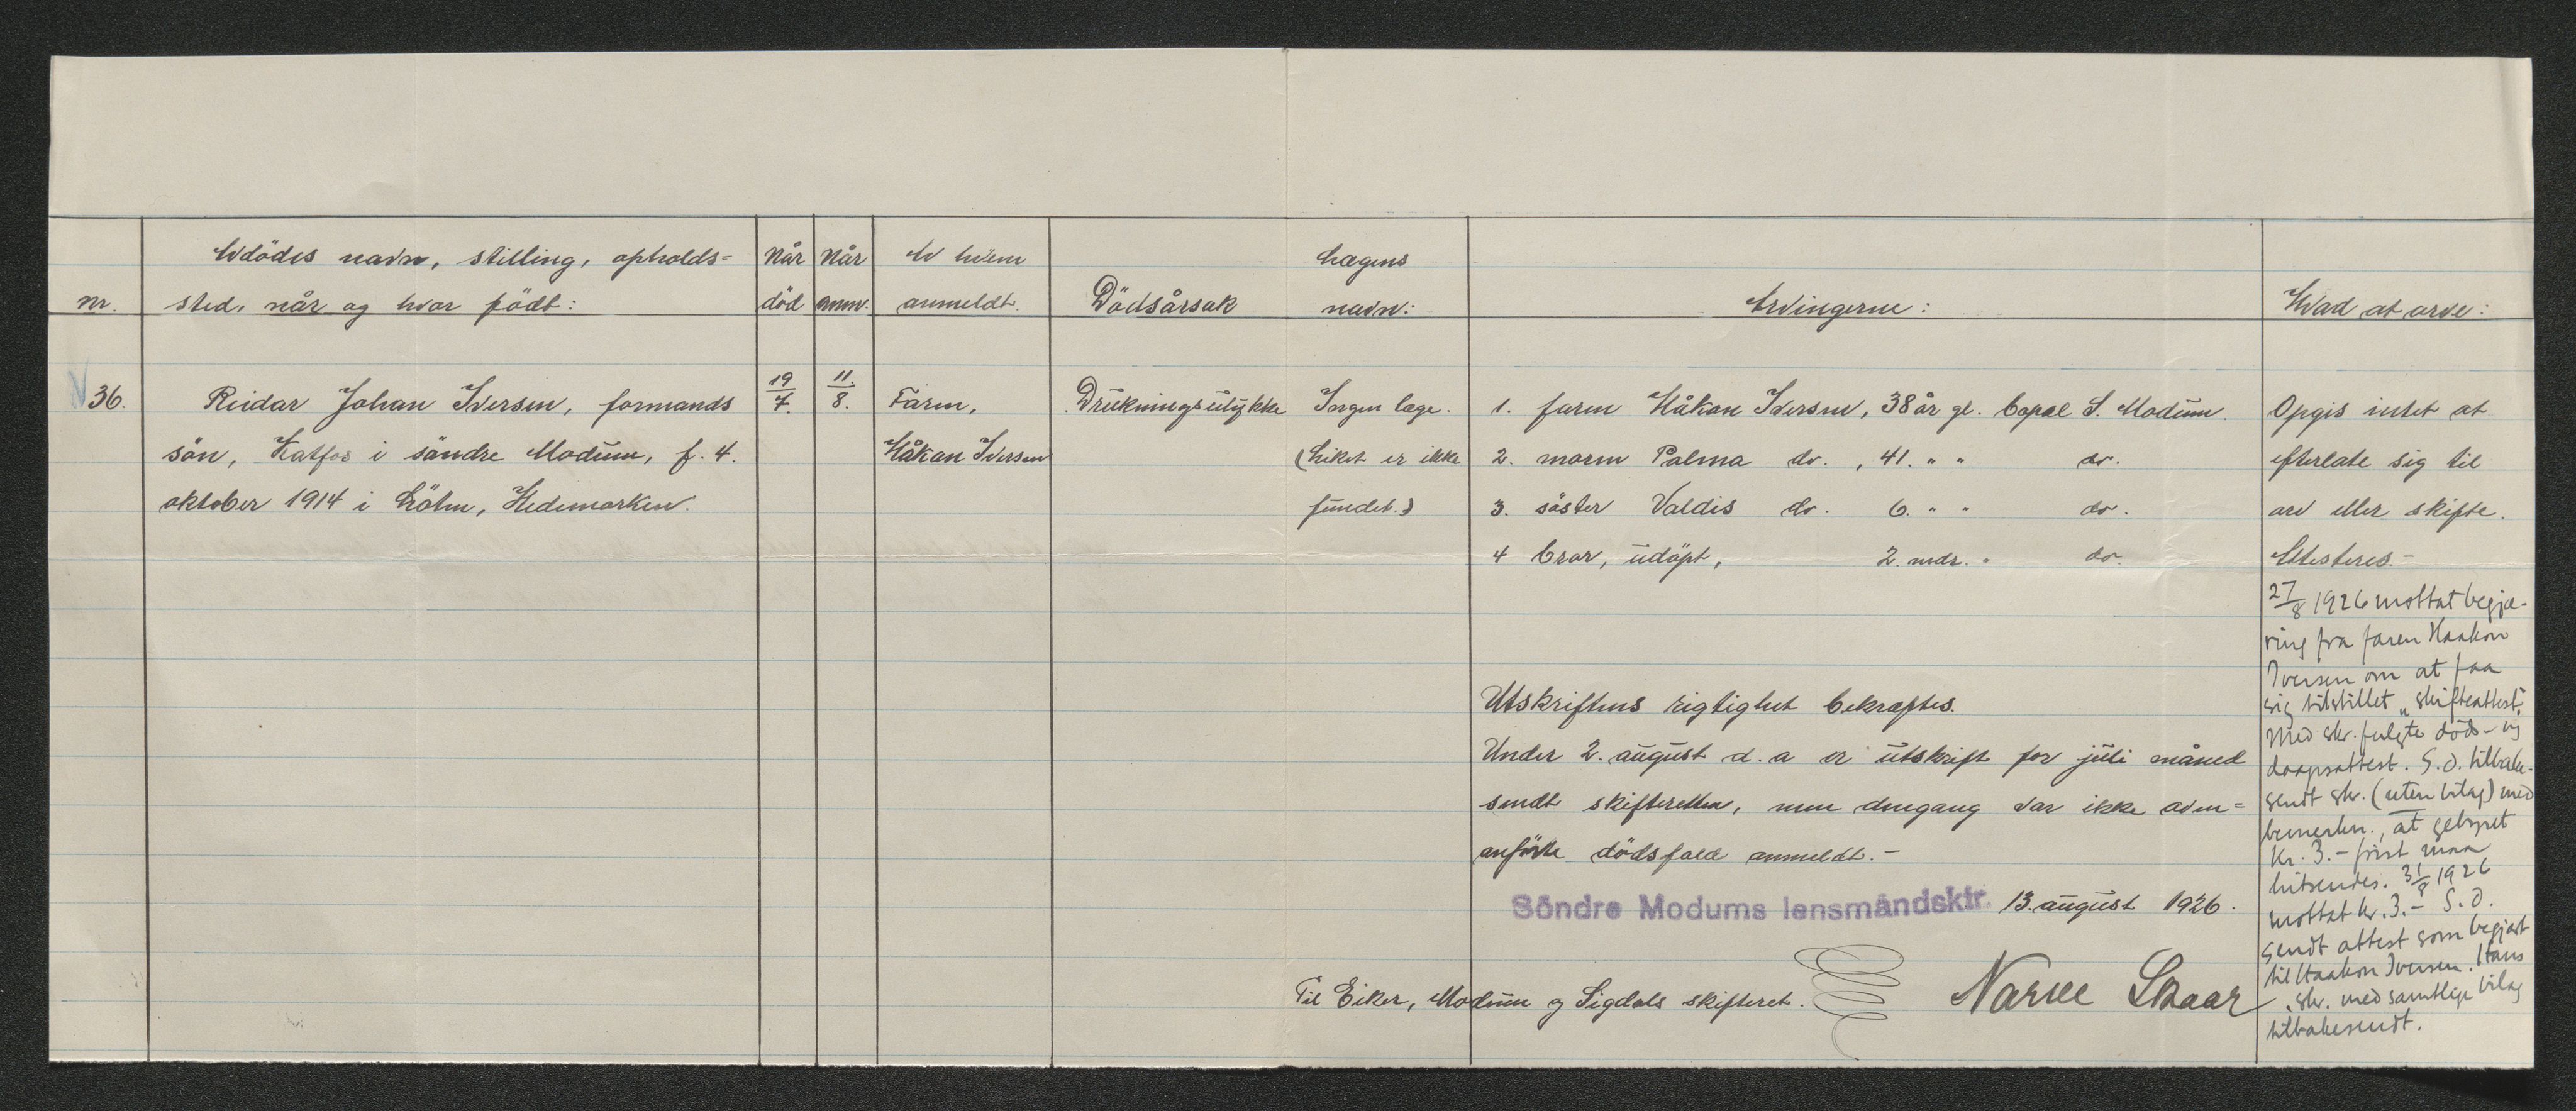 Avdödes navn, stilling, opholds=
sted, når og hvor födt:
nr.
Når
död
Når
anm.
Av hvem
anmeldt.
Dödsårsak
Lægens
navn:
Arvingerne:
Hvad at arve:
36.
Reidar Johan Iversen, formands
sön, Katfos i söndre Modum, f. 4.
oktober 1914 i Löten, Hedemarken.
19/7.
11./8.
Faren,
Håkan Iversen
Drukningsulykke
Ingen læge.
(Liket er ikke
fundet.)
1. faren Håkan Iversen, 38 år gl. Copal S. Modum.
2. moren Palma do. , 41. " " do.
3. söster Valdis do. 6. " " do.
4 bror, udöpt, 2. mdr. " do.
Opgis intet at
efterlate sig til
arv eller skifte.
Attesteres-
Utskriftens rigtighet bekræftes.
Under 2. august d. a er utskrift for juli måned
sendt skifteretten, men dengang var ikke oven=
anförte dödsfald anmeldt.-
Söndre Modums lensmandsktr. 13. august 1926.
Til Eiker, Modum og Sigdals skifteret.
Narve Skaar
27/8 1926 mottat begjæ-
ring fra faren Haakon
Iversen om at faa
sig tilstillet "skifteattest".
Med skr. fulgte döds- og
daapsattest. S.d. tilbake-
sendt skr. (uten bilag) med
bemerkn., at gebyret
kr. 3.- först maa
indsendes. 31/8 1926
mottat kr. 3.- S.d.
sendt attest som begjært
til Haakon Iversen. Hans
skr. med samtlige bilag
tilbakesendt.